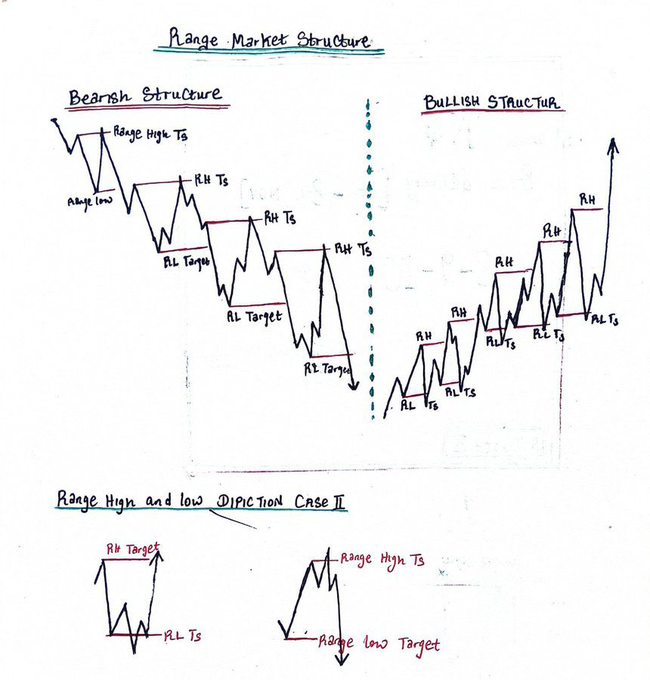 Range Market Structure
Bearish Structure
BULLISH STRUCTUR
Range High Ts
Range low
RH Ts
RL Target
RH Ts
RL Target
RH Ts
RL Target
RH
RL Ts
RH
RL Ts
RH
RL Ts
RH
RL Ts
RH
RL Ts
Range High and low DIPICTION CASE II
RH Target
RL Ts
Range High Ts
Range low Target